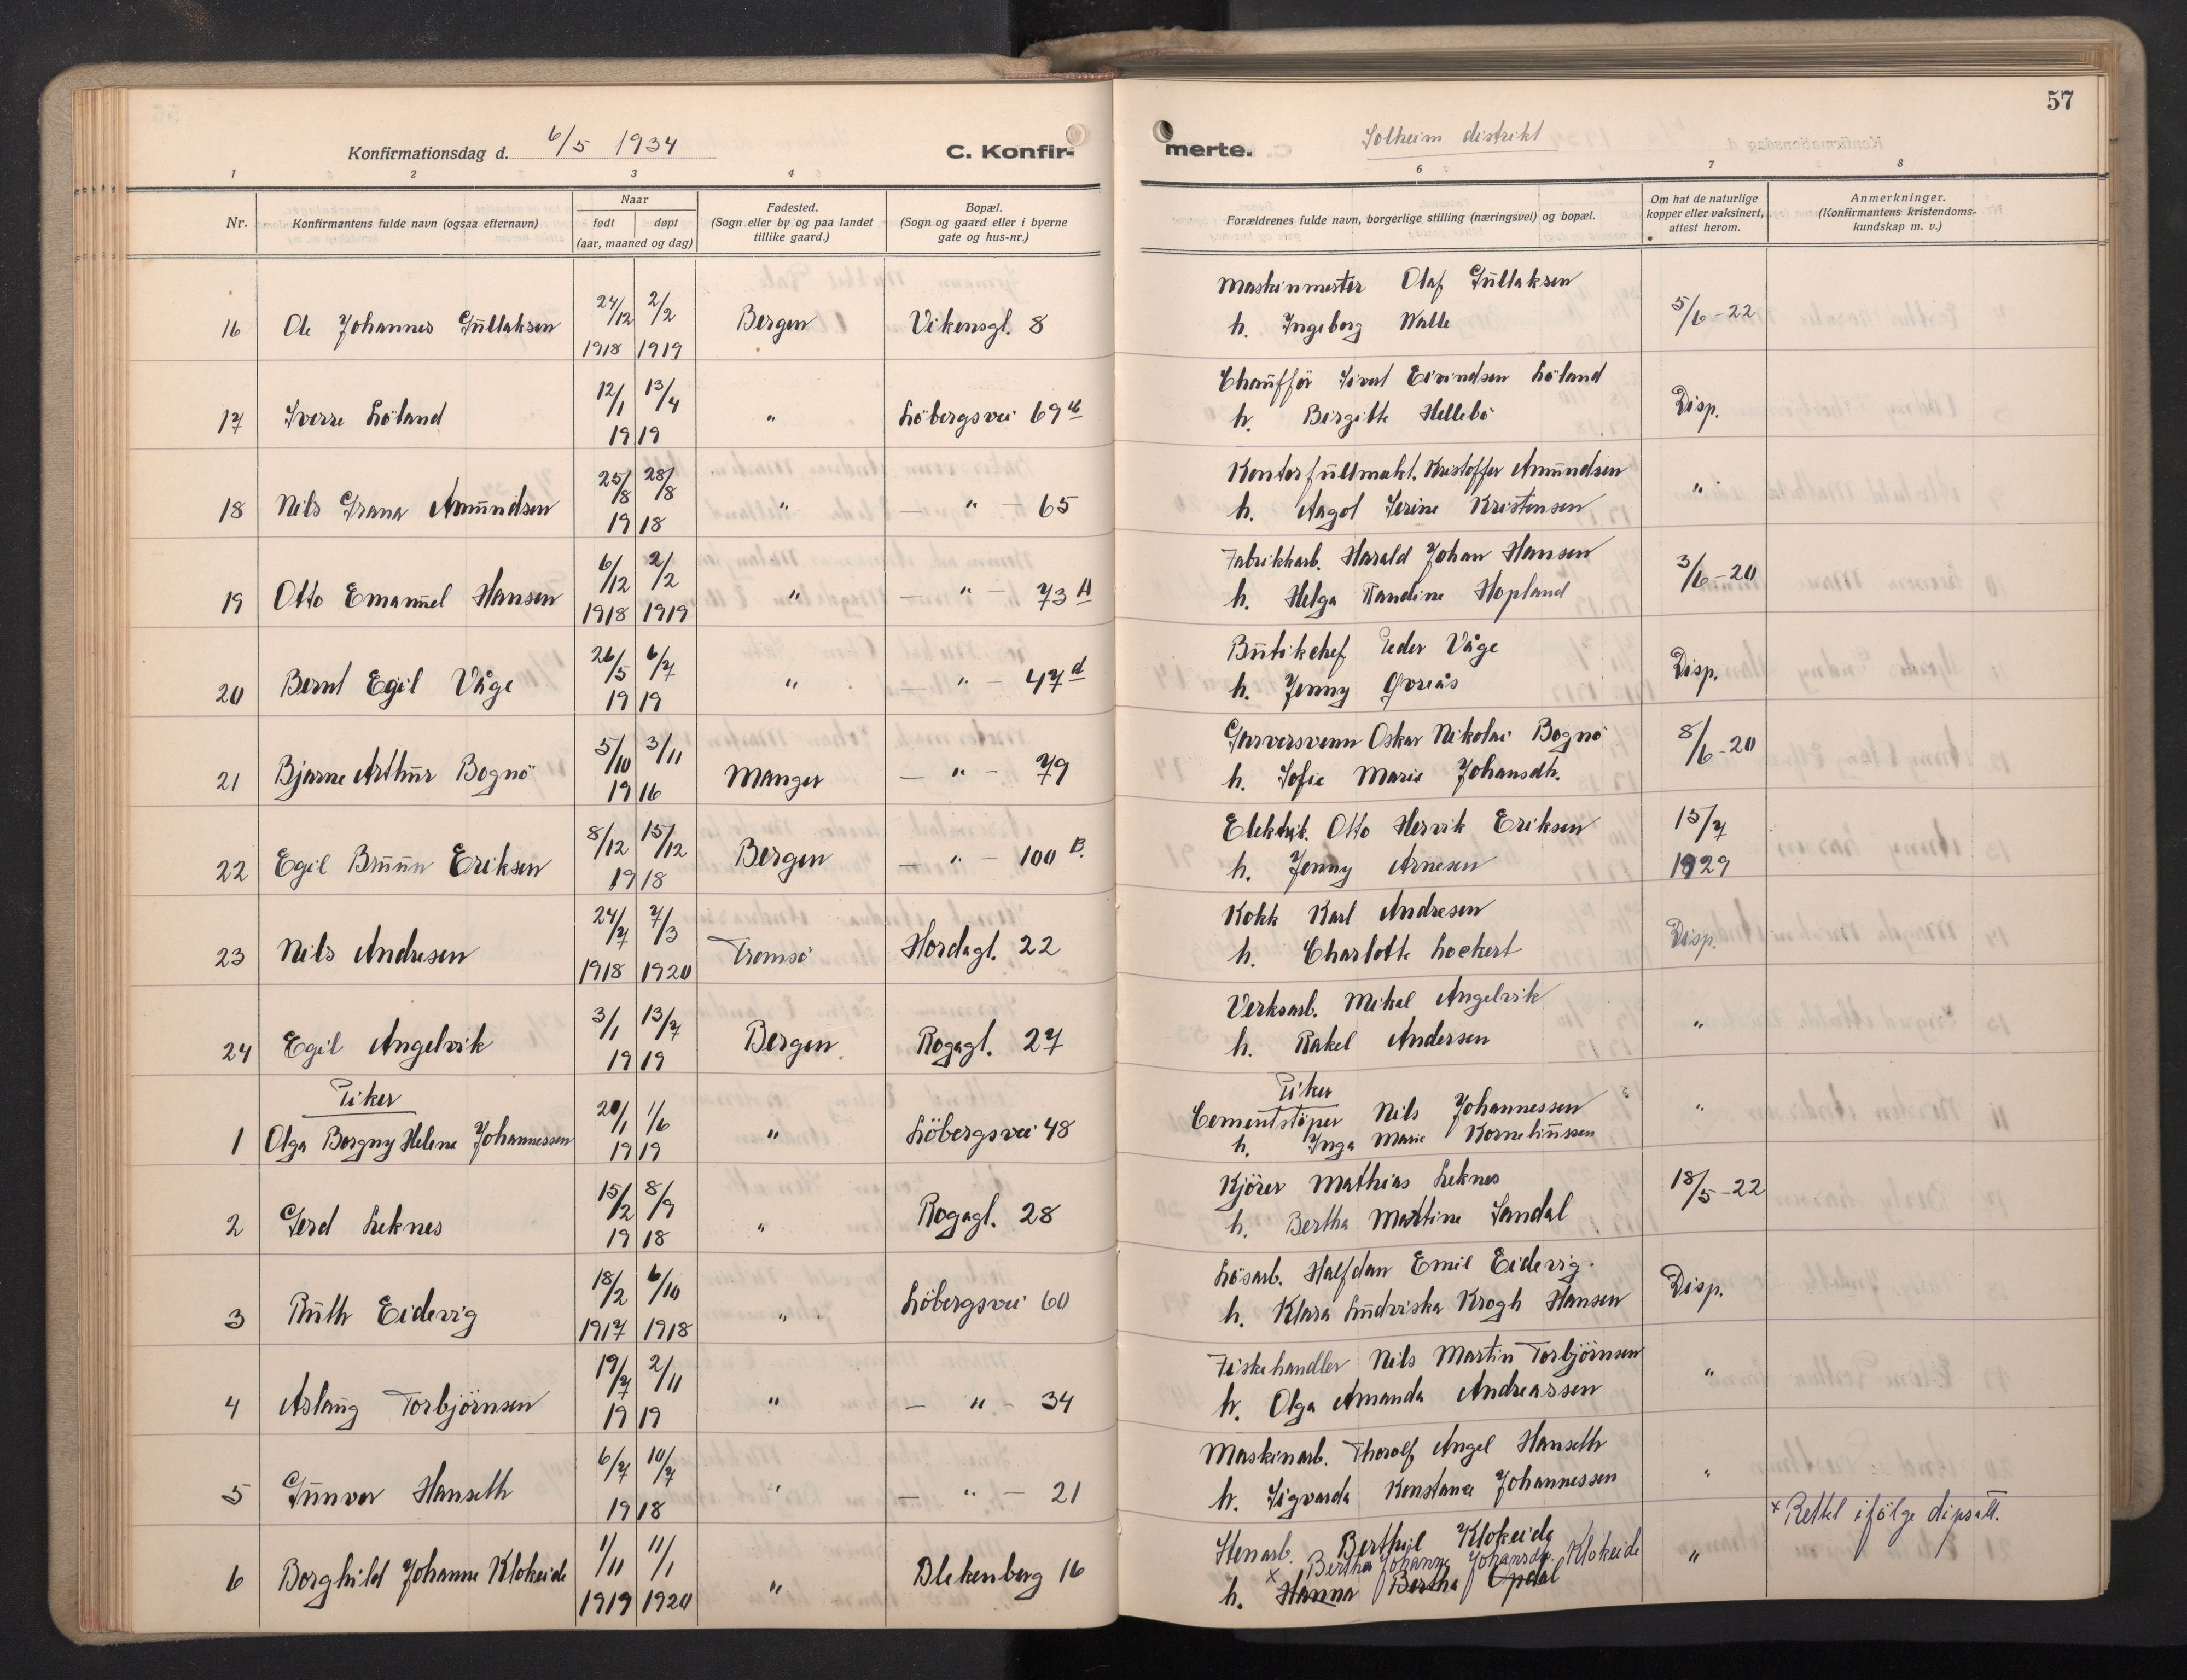 57
Konfirmationsdag d. 6/5 1934 C. Konfir-
merte. Solheim distrikt
1 2 3 4
6 7 8
Nr. Konfirmantens fulde navn (ogsaa efternavn)
Naar
født døpt
(aar, maaned og dag)
Fødested.
(Sogn eller by og paa landet
tillike gaard.)
Bopæl.
(Sogn og gaard eller i byerne
gate og hus-nr.)
Forældrenes fulde navn, borgerlige stilling (næringsvei) og bopæl.
Om hat de naturlige
kopper eller vaksinert,
attest herom.
Anmerkninger.
(Konfirmantens kristendoms-
kundskap m. v.)
24/12 2/2
16 Ole Johannes Gullaksen Bergen Vikensgt. 8
1918 1919
Maskinmester Olaf Gullaksen
h. Ingeborg Walle
5/6-22
12/1 13/4
17 Sverre Löland " Löbergsvei 69b
1919
Chaufför Sivert Eivindsen Löland
h. Birgitte Hellebö
Disp.
25/8 28/8
18 Nils Grana Amundsen " — " — 65
1918
Kontorfullmakt. Kristoffer Amundsen
h. Aagot Serine Kristensen
"
6/12 2/2
19 Otto Emanuel Hansen " — " — 73 A
1918 1919
Fabrikkarb. Harald Johan Hansen
h. Helga Randine Hopland
3/6-20
26/5 6/7
20 Bernt Egil Våge " — " — 47d
1919
Butikchef Peder Våge
h. Jenny Øvreås
Disp.
5/10 3/11
21 Bjarne Arthur Bognö Manger — " — 79
1916
Garversvenn Oskar Nikolai Bognö
h. Sofie Marie Johansdt.
8/6-20
8/12 15/12
22 Egil Bruun Eriksen Bergen — " — 100 B.
1918
Elektrik. Otto Hervik Eriksen
h. Jenny Arnesen
15/7
1929
24/7 7/3
23 Nils Andresen Tromsö Hordagt. 22
1918 1920
Kokk Karl Andresen
h. Charlotte Lockert
Disp.
3/1 13/7
24 Egil Angelvik Bergen Rogagt. 27
1919
Verksarb. Mikal Angelvik
h. Rakel Andersen
"
Piker
20/1 1/6
1 Olga Borgny Helene Johannessen " Löbergsvei 48
1919
Piker
Cementstöper Nils Johannessen
h. Inga Marie Korneliussen
"
15/2 8/9
2 Gerd Leknes " Rogagt. 28
1918
Kjörer Mathias Leknes
h. Bertha Martine Sandal
18/5-22
18/2 6/10
3 Ruth Eidevig " Löbergsvei 60
1917 1918
Lösarb. Halfdan Emil Eidevig
h. Klara Ludviska Krogh Hansen
Disp.
19/7 2/11
4 Aslaug Torbjörnsen " — " — 34
1919
Fiskehandler Nils Martin Torbjörnsen
h. Olga Amanda Andreassen
"
6/7 10/7
5 Gunvor Hanseth " — " — 21
1918
Maskinarb. Thorolf Angel Hanseth
h. Sigvarda Konstance Johannessen
"
1/11 11/1
6 Borghild Johanne Klokeide " Blekenberg 16
1919 1920
Stenarb. Berthil Klokeide
x Bertha Johanne Johansdtr. Klokeide
h. Hanna Bertha Opdal
"
x Rettet ifölge dåpsatt.